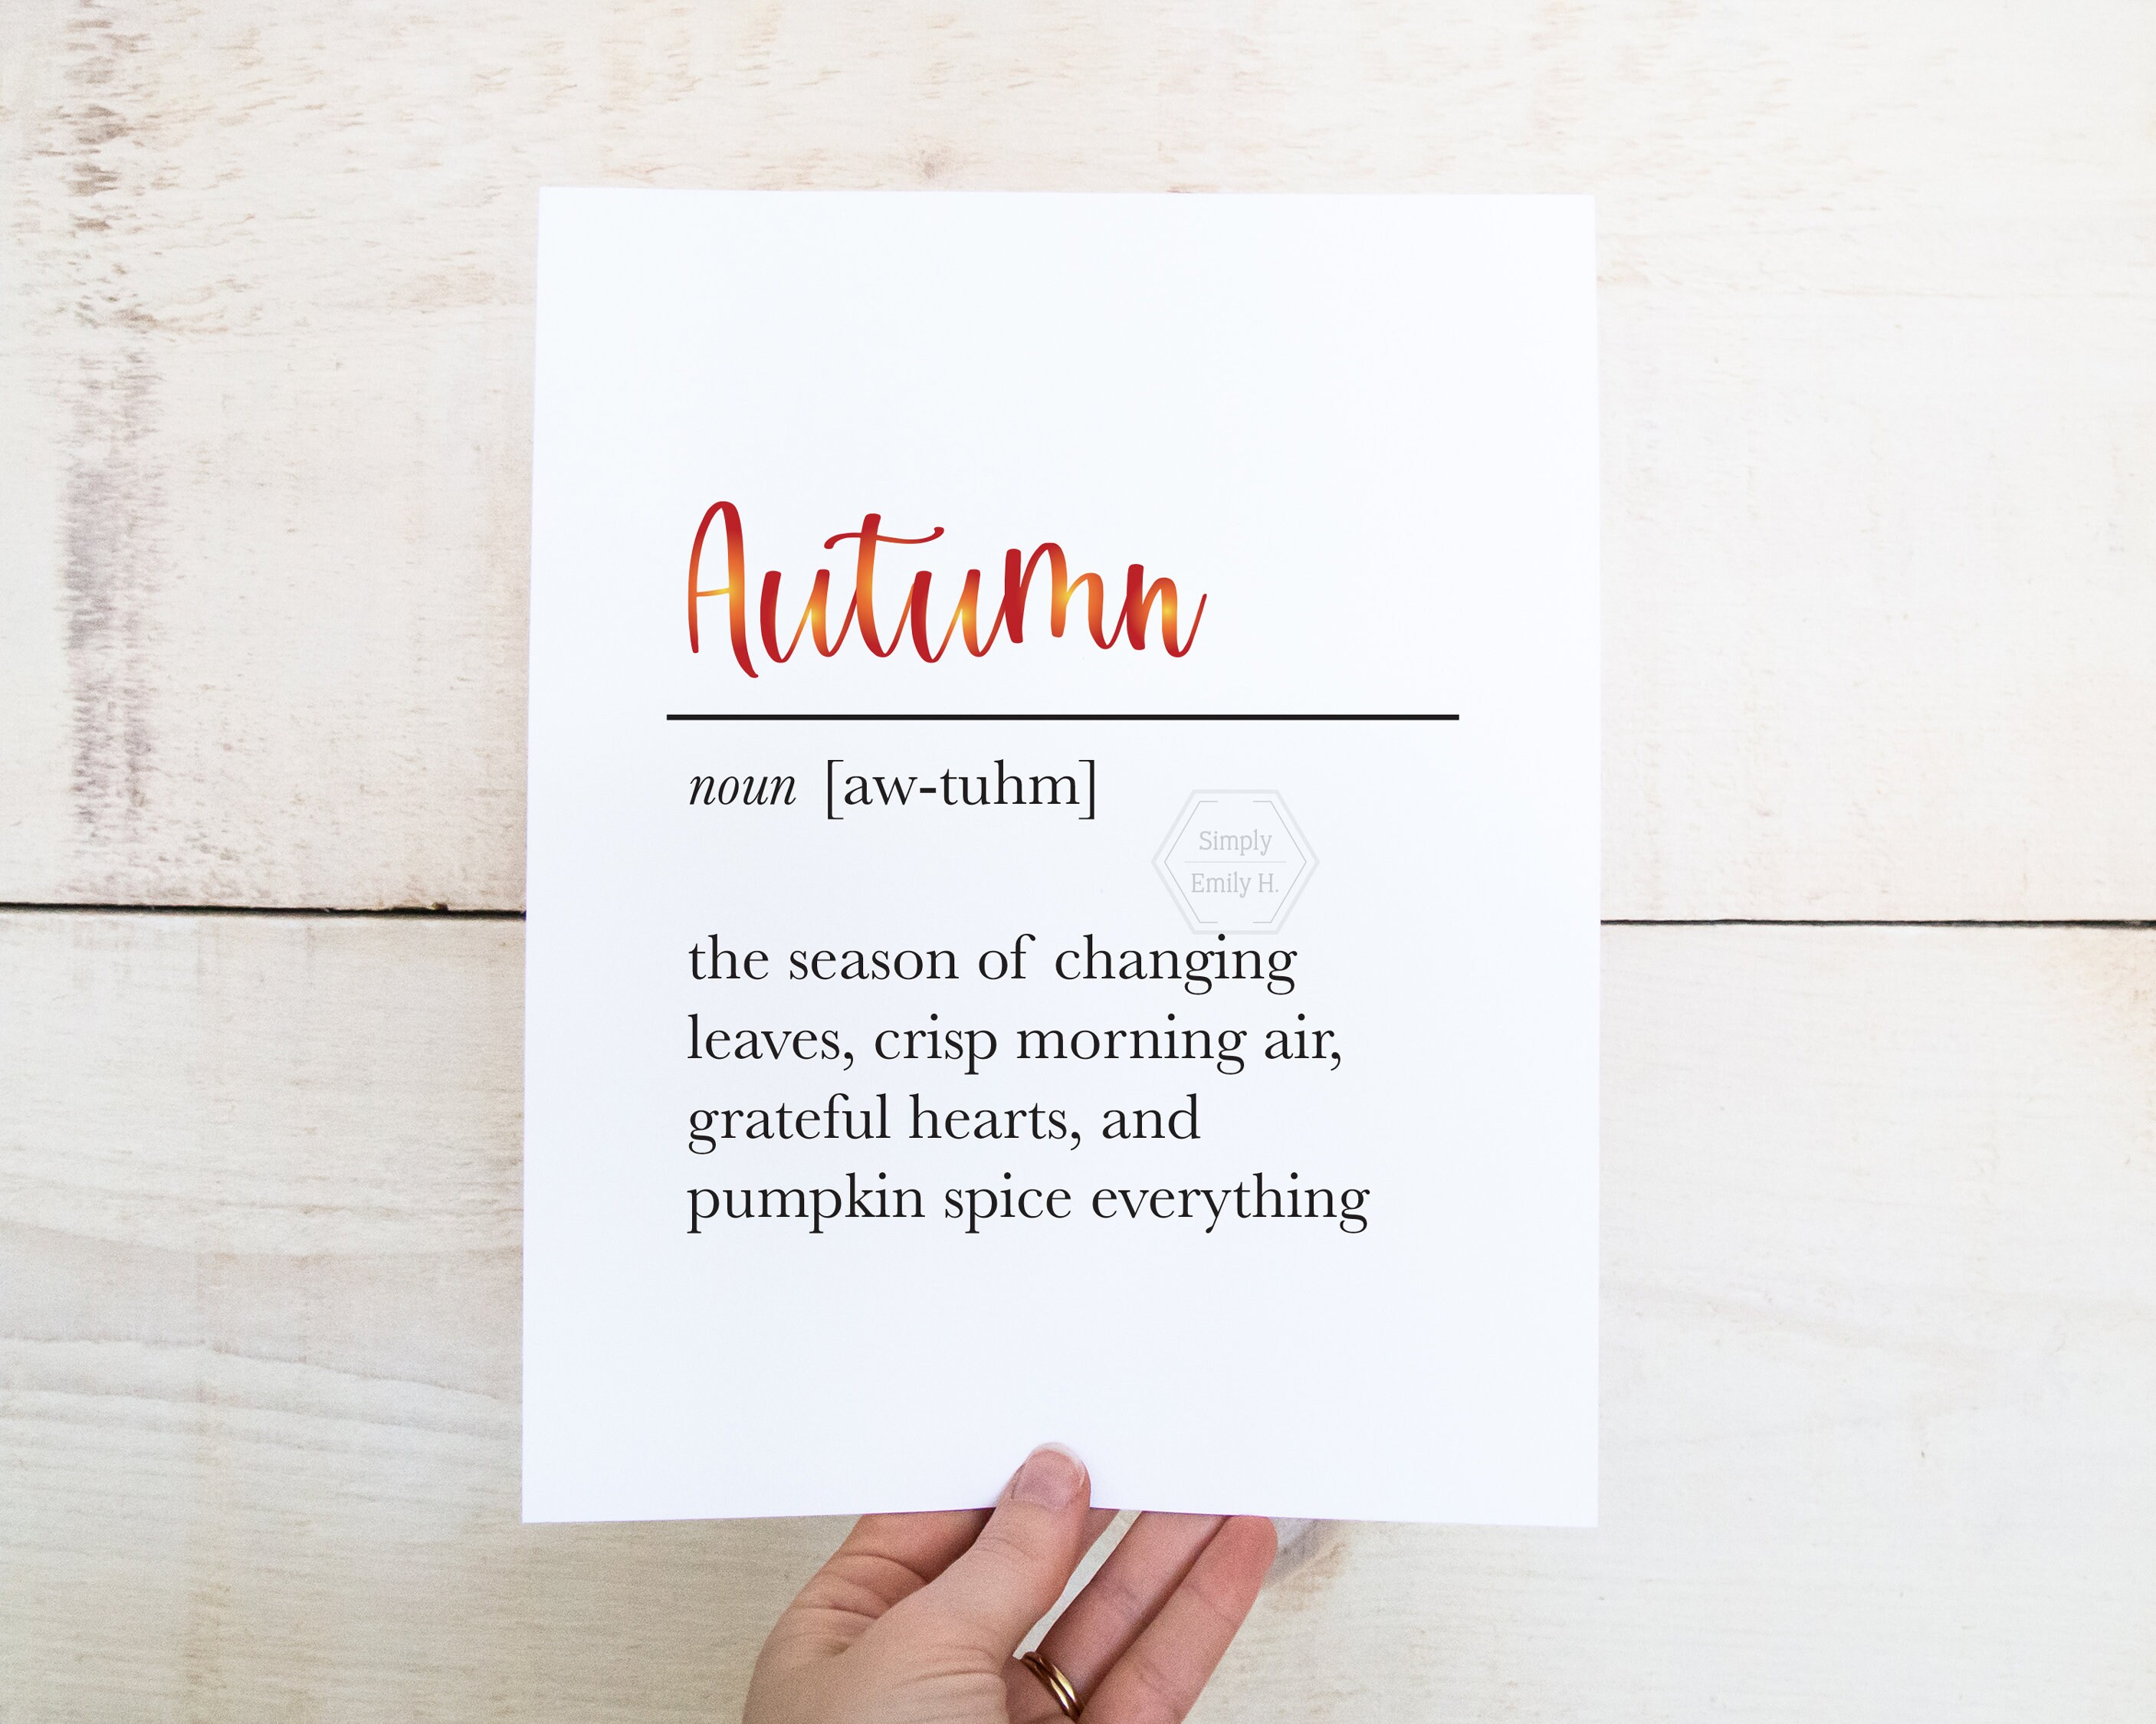 Autumn
noun [aw-tuhm]
Simply
Emily H.
the season of changing
leaves, crisp morning air,
grateful hearts, and
pumpkin spice everything